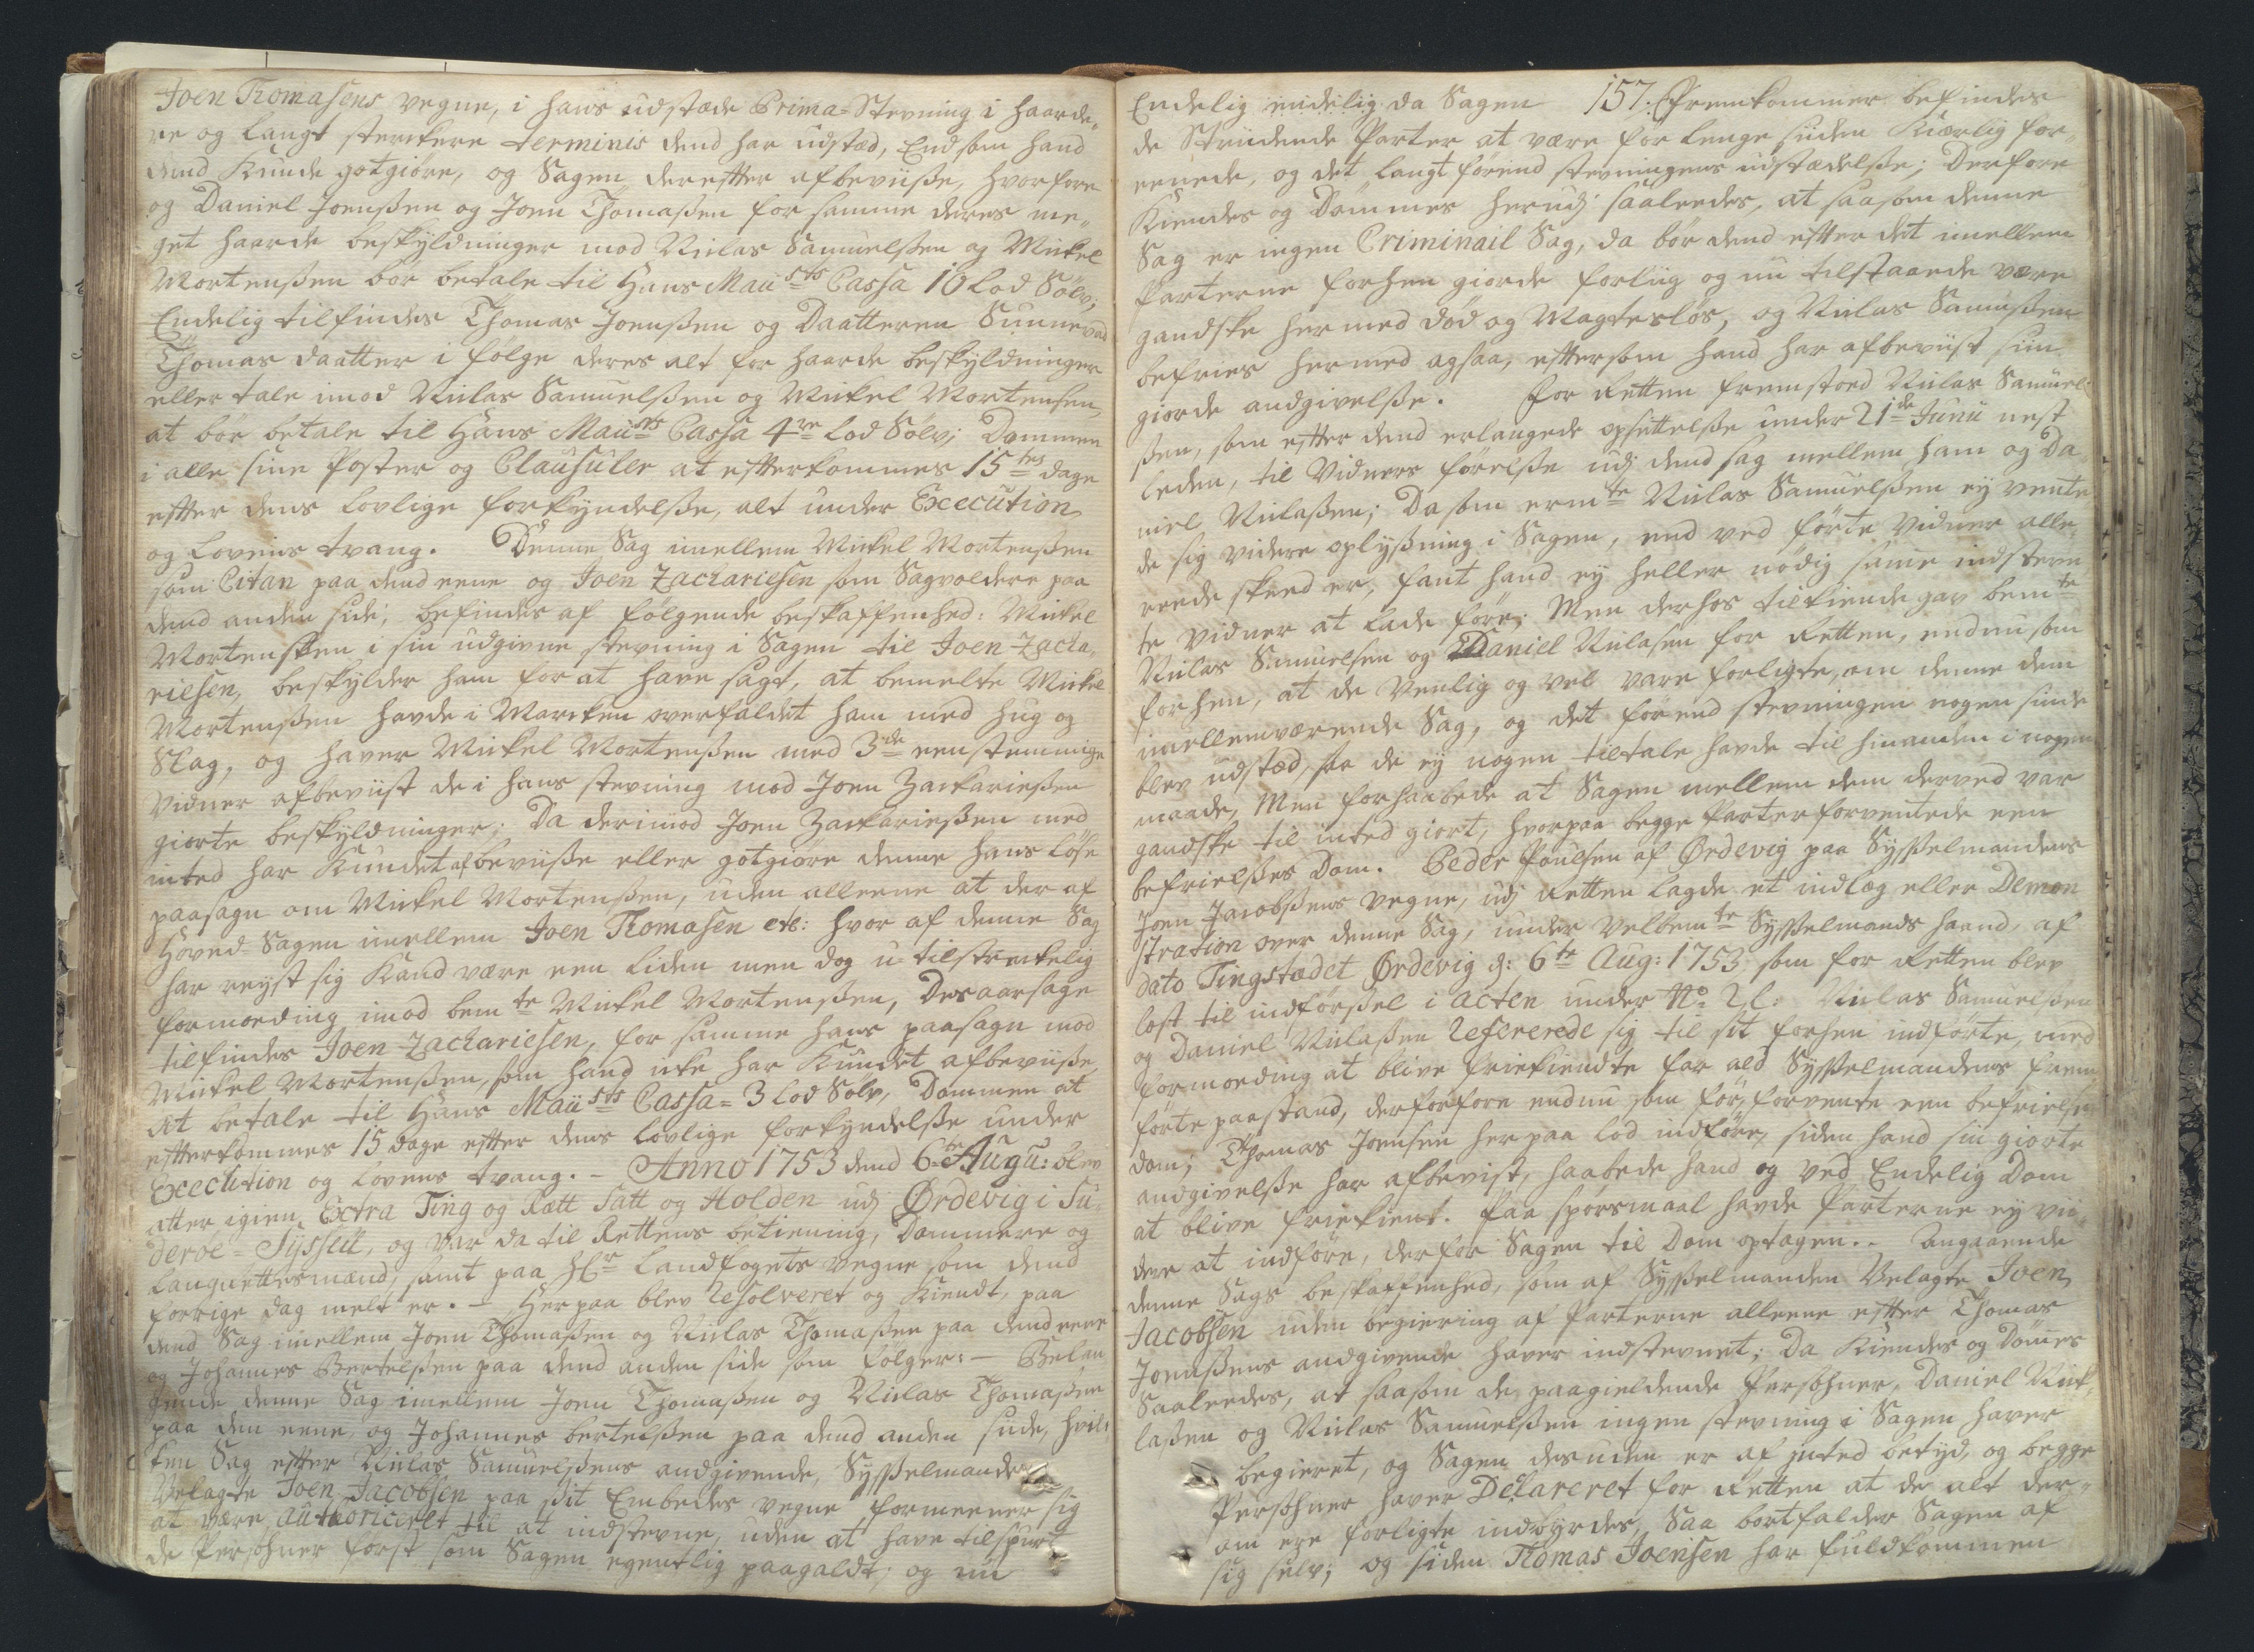 Joen Thomasens vegne, i hans udstæde Prima-Stevning i haarde„
re og langt sterckere terminis dend har udstæd, End som hand
dend Kunde gotgiöre, og Sagen derefter afbeviisse, hvorfore
og Daniel Joenssen og Joen Thomassen for samme deres me„
get haarde beskyldninger mod Niclas Samuelssen og Mickel
Mortenssen bör betale til Hans Maii=sts Cassa 16 Lod Sölv;
Endelig tilfindes Thomas Joenssen og Daatteren Sunneva
Thomas daatter i fölge deres alt for haarde beskyldninger
eller tale imod Niclas Samuelssen og Mickel Mortensen,
at bör betale til Hans Maii=sts Cassa 4re Lod Sölv; Dommen
i alle siine Poster og Clausuler at efterkommes 15=tes dage
efter dens lovlige forkyndelsse, alt under Execution
og Lovens tvang. Denne Sag imellem Mickel Mortenssen
som Citan paa dend eene og Joen Zachariesen som Sagvoldere paa
dend anden side, befindes af fölgende beskaffenhed: Mickel
Mortenssen i sin udgivne stevning i Sagen til Joen Zacha„
riesen, beskylder ham for at have sagt, at bemelte Mickel
Mortenssen havde i Marcken overfaldet ham med hug og
Slag, og haver Mickel Mortenssen med 3de eenstemmige
vidner afbeviist de i hans stevning mod Joen Zackariessen
giorte beskyldninger; Da derimod Joen Zackariessen med
inted har Kundet afbeviisse eller gotgiöre denne hans löse
paasagn om Mickel Mortenssen, uden alleene at der af
Hoved-Sagen imellem Joen Thomasen etc: hvor af denne Sag
har reyst sig Kand være een liden men dog u-tilstreckelig
formoeding imod bem=te Mickel Mortenssen, Des aarsage
tilfindes Joen Zachariesen, for samme hans paasagn mod
Mickel Mortenssen, som hand icke har Kundet afbeviisse,
at betale til Hans Maii=sts Cassa = 3 Lod Sölv, Dommen at
efterkommes 15 dage efter dens lovlige forkyndelsse under
Execution og Lovens tvang. – Anno 1753 dend 6=te Augu: blev
atter igien Extra Ting og Rætt Satt og Holden udj Ørdevig i Su„
deröe = Sÿssell, og var da til Rettens betiening, Dommere og
Laugrettesmænd, samt paa Hr Landfogets vegne som dend
forrige dag melt er. – Her paa blev Resolveret og Kiendt, paa
dend Sag imellem Joen Thomassen og Niclas Thomassen paa dend eene
og Johannes Bertelssen paa dend anden side som fölger: – Belan
gende denne Sag imellem Joen Thomassen og Niclas Thomassen
paa den eene, og Johannes bertelssen paa dend anden siide, hvil„
ken Sag efter Niclas Samuelssens andgivende, Sysselmanden
Velagte Joen Jacobsen paa sit Embedes vegne formeener sig
at være authoriceret til at indstevne, uden at have tilspurt
de Persohner först som Sagen egentlig paagaldt, og nu
157.
Endelig endelig da Sagen fremkommer befindes
de Striidende Parter at være for lenge siiden Kiærlig for„
eenede, og det langt förend stevningens udstædelsse; Derfore
Kiendes og Dömmes herudj saaleedes, at saasom denne
Sag er ingen Criminail Sag, da bör dend efter det imellem
Parterne forhen giorde forliig og nu tilstaaede være
gandske hermed död og Magteslös, og Niclas Samuelssen
befries hermed agsaa, eftersom hand har afbeviist siin
giorde andgivelsse. For Retten fremstoed Niclas Samuel„
ssen, som efter dend erlangede opsettelsse under 21=de Junii nest
leden, til Vidners förelsse udj dend sag mellem ham og Da
niel Niclassen; Da som erm=te Niclas Samuelssen ey vente
de sig videre oplyssning i Sagen, end ved förte vidner alle
reede skeed er, fant hand ey heller nödig samme indstevn
te vidner at lade före; Men derhos tilkiende gav bem=te
Niclas Samuelsen og Daniel Niclasen for Retten, endnu som
forhen, at de venlig og vel vare forligte, om denne dem
imellemværende Sag, og det förend stevningen nogen sinde
blev udstæd, saa de ey nogen tiltale havde til hinanden i nogen
maade, Men forhaabede at Sagen mellem dem derved var
gandske til inted giort, hvorpaa begge Parter forventede een
befrielsses Dom. Peder Poulsen af Ørdevig paa Sysselmandens
Joen Jacobssens vegne, udj Retten lagde et indlæg eller Demon
stration over denne Sag, under Velbem=te Sysselmands haand, af
dato Tingstædet Ørdevig d: 6te Aug: 1753 som for Retten blev
læst til indförssel i acten under No 2l. Niclas Samuelssen
og Daniel Niclassen Refererede sig til sit forhen indförte, med
formoeding at blive friekiendte for ald Sysselmandens frem
förte paastand, derforfore endnu som för, forvente een befrielses
dom; Thomas Joensen her paa lod indföre, siden hand sin giorte
andgivelsse har afbevist, haabede hand og ved Endelig Dom
at blive friekient. Paa spörsmaal havde Parterne ey vii„
dere at indföre, derfor Sagen til Dom optagen. – Angaaende
denne Sags beskaffenhed, som af Sysselmanden Velagte Joen
Jacobsen uden begiering af Parterne alleene efter Thomas
Joenssens andgivende haver indstevnet; Da Kiendes og Dömes
Saaleedes, at saasom de paagieldende Persohner, Daniel Nick„
lassen og Niclas Samuelssen ingen stevning i Sagen haver
begieret, og Sagen desuden er af inted betyd, og begge
Persohner haver Declareret for Retten at de alt der„
om ere forligte indbyrdes, Saa bortfalder Sagen af
sig selv; og siden Thomas Joensen har fuldkommen